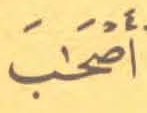 أَصْحَٰبَ